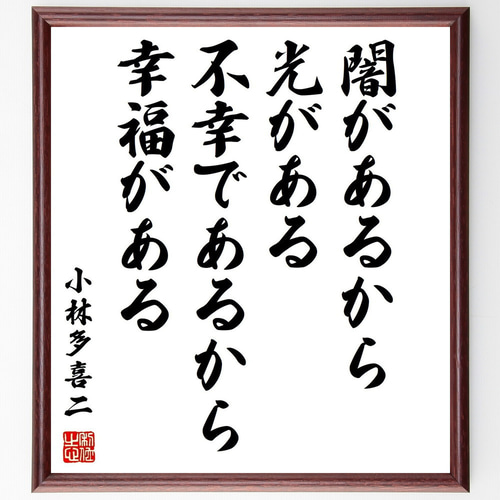 闇があるから
光がある
不幸であるから
幸福がある
小林多喜二